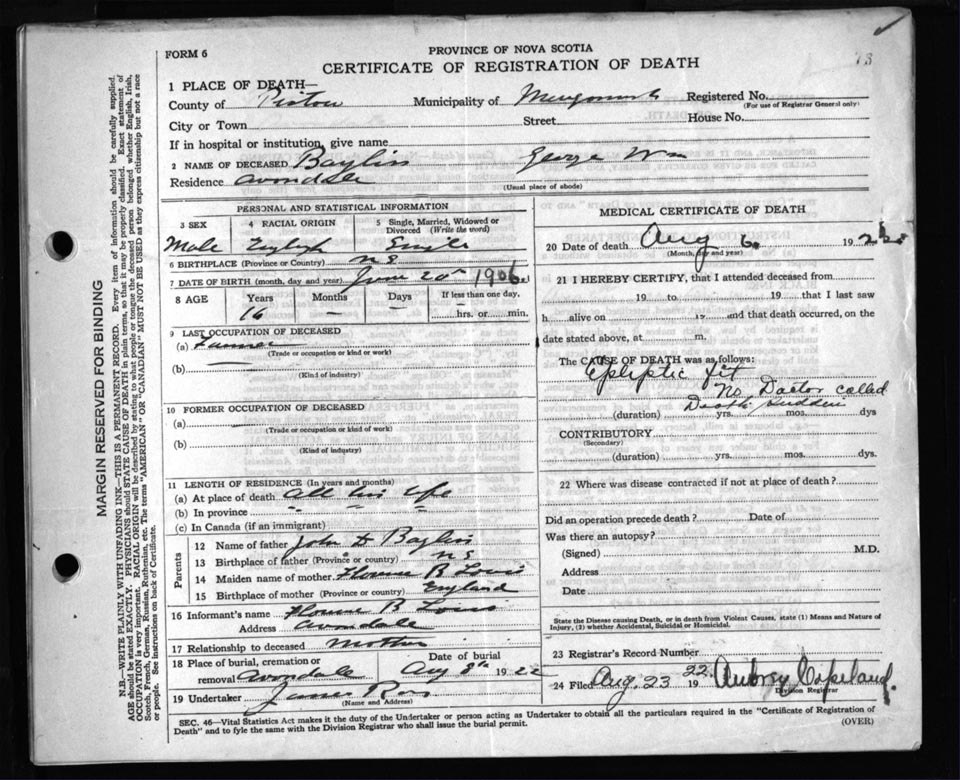 FORM 6
PROVINCE OF NOVA SCOTIA
CERTIFICATE OF REGISTRATION OF DEATH
1 PLACE OF DEATH—
County of Pictou Municipality of Registered No.
(For use of Registrar General only)
City or Town Street House No.
If in hospital or institution, give name
2 NAME OF DECEASED Bayliss George Wm
Residence Avondale (Usual place of abode)
PERSONAL AND STATISTICAL INFORMATION
3 SEX 4 RACIAL ORIGIN 5 Single, Married, Widowed or Divorced (Write the word)
Male English Single
6 BIRTHPLACE (Province or Country) N S
7 DATE OF BIRTH (month, day and year) June 20th 1906
8 AGE Years Months Days If less than one day,
16 — — hrs. or min.
9 LAST OCCUPATION OF DECEASED
(a) Farmer
(Trade or occupation or kind or work)
(b)
(Kind of industry)
10 FORMER OCCUPATION OF DECEASED
(a)
(Trade or occupation or kind or work)
(b)
(Kind of industry)
11 LENGTH OF RESIDENCE (In years and months)
(a) At place of death all his life
(b) In province " " "
(c) In Canada (if an immigrant)
Parents
12 Name of father John Bayliss
13 Birthplace of father (Province or country) N S
14 Maiden name of mother B
15 Birthplace of mother (Province or country) England
16 Informant's name B
Address Avondale
17 Relationship to deceased Mother
18 Place of burial, cremation or removal Avondale Date of burial Aug 8th 1922
19 Undertaker James Ross
(Name and Address)
MEDICAL CERTIFICATE OF DEATH
20 Date of death Aug 6 192
(Month, day and year)
21 I HEREBY CERTIFY, that I attended deceased from
19 to 19 that I last saw
h alive on 19 and that death occurred, on the
date stated above, at m.
The CAUSE OF DEATH was as follows:
Epliptic fit
No Doctor called
Death Sudden
(duration) yrs. mos. dys
CONTRIBUTORY
(Secondary)
(duration) yrs. mos. dys.
22 Where was disease contracted if not at place of death?
Did an operation precede death? Date of
Was there an autopsy?
(Signed) M.D.
Address
Date
State the Disease causing Death, or in death from Violent Causes, state (1) Means and Nature of Injury, (2) whether Accidental, Suicidal or Homicidal.
23 Registrar's Record Number
24 Filed Aug. 23 1922. Aubrey Copeland.
Division Registrar
SEC. 46—Vital Statistics Act makes it the duty of the Undertaker or person acting as Undertaker to obtain all the particulars required in the "Certificate of Registration of
Death" and to fyle the same with the Division Registrar who shall issue the burial permit. (OVER)
MARGIN RESERVED FOR BINDING
N.B.—WRITE PLAINLY WITH UNFADING INK—THIS IS A PERMANENT RECORD. Every item of information should be carefully supplied.
AGE should be stated EXACTLY. PHYSICIANS should STATE CAUSE OF DEATH in plain terms, so that it may be properly classified. Exact statement of
OCCUPATION is very important. RACIAL ORIGIN will be described by stating to what people or tongue the deceased person belonged whether English, Irish,
Scotch, French, German, Russian, Ruthenian, etc. The terms "AMERICAN" OR "CANADIAN" MUST NOT BE USED as they express citizenship but not a race
or people. See instructions on back of Certificate.